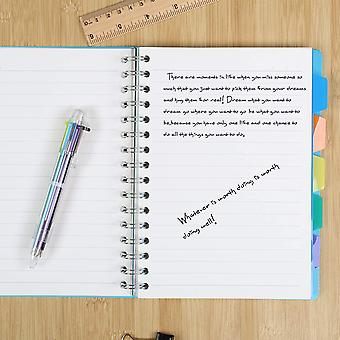 There are moments in life when you miss someone so
much that you just want to pick them from your dreams
and hug them for real! Dream what you want to
dream go where you want to go be what you want to
be,because you have only one life and one chance to
do all the things you want to do.
Whatever is worth doing is worth
doing well!